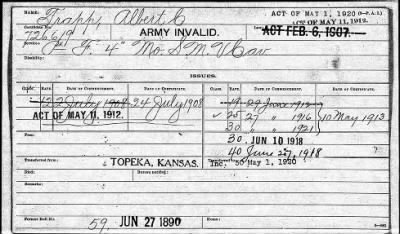 NAME: Trapp, Albert C
ACT OF MAY 1, 1920
ACT OF MAY 11, 1912.
726619
ARMY INVALID.
ACT FEB. 6, 1907.
Service: F. 4" Mo. S. M. V Cav
Disability:
ISSUES.
CLASS. RATE. DATE OF COMMENCEMENT. DATE OF CERTIFICATE. CLASS. RATE. DATE OF COMMENCEMENT. DATE OF CERTIFICATE.
12 22 July 1908 24 July 1908 19 29 June 1912
ACT OF MAY 11, 1912. 25 27 " 1916 10 May 1913
30 " 1921
From: 30 JUN 10 1918
40 June 27, 1918
Transferred from: Inc. 50 May 1, 1920
TOPEKA, KANSAS.
Died:
Remarks:
Former Roll No. 59. JUN 27 1890